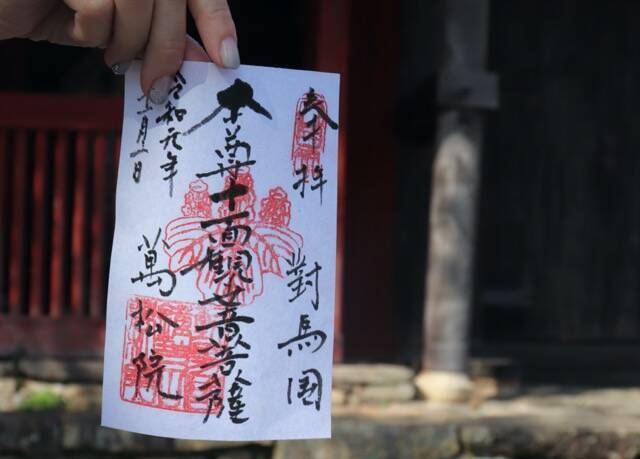 奉拝
對馬国
本尊十一面観音菩薩
令和元年
萬松院